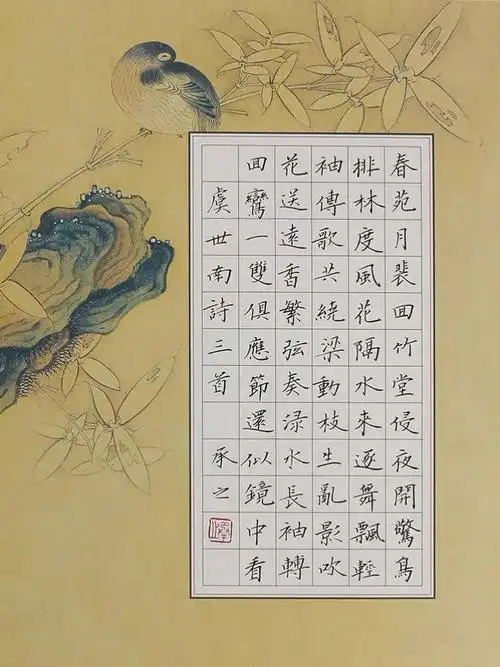 春苑月裴回竹堂侵夜開驚鳥
排林度風花隔水來逐舞飄輕
袖傳歌共繞梁動枝生亂影吹
花送遠香繁弦奏渌水長袖轉
回鸞一雙俱應節還似鏡中看
虞世南詩三首 承之